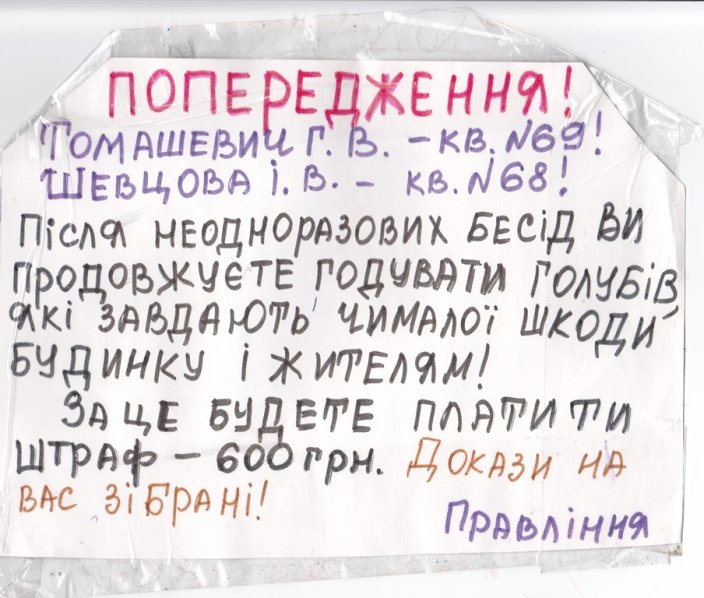 ПОПЕРЕДЖЕННЯ!
ТОМАШЕВИЧ Г. В. – КВ. №69!
ШЕВЦОВА І. В. – КВ. №68!
ПІСЛЯ НЕОДНОРАЗОВИХ БЕСІД ВИ
ПРОДОВЖУЄТЕ ГОДУВАТИ ГОЛУБІВ,
ЯКІ ЗАВДАЮТЬ ЧИМАЛОЇ ШКОДИ
БУДИНКУ І ЖИТЕЛЯМ!
ЗА ЦЕ БУДЕТЕ ПЛАТИТИ
ШТРАФ – 600 ГРН. ДОКАЗИ НА
ВАС ЗІБРАНІ!
ПРАВЛІННЯ